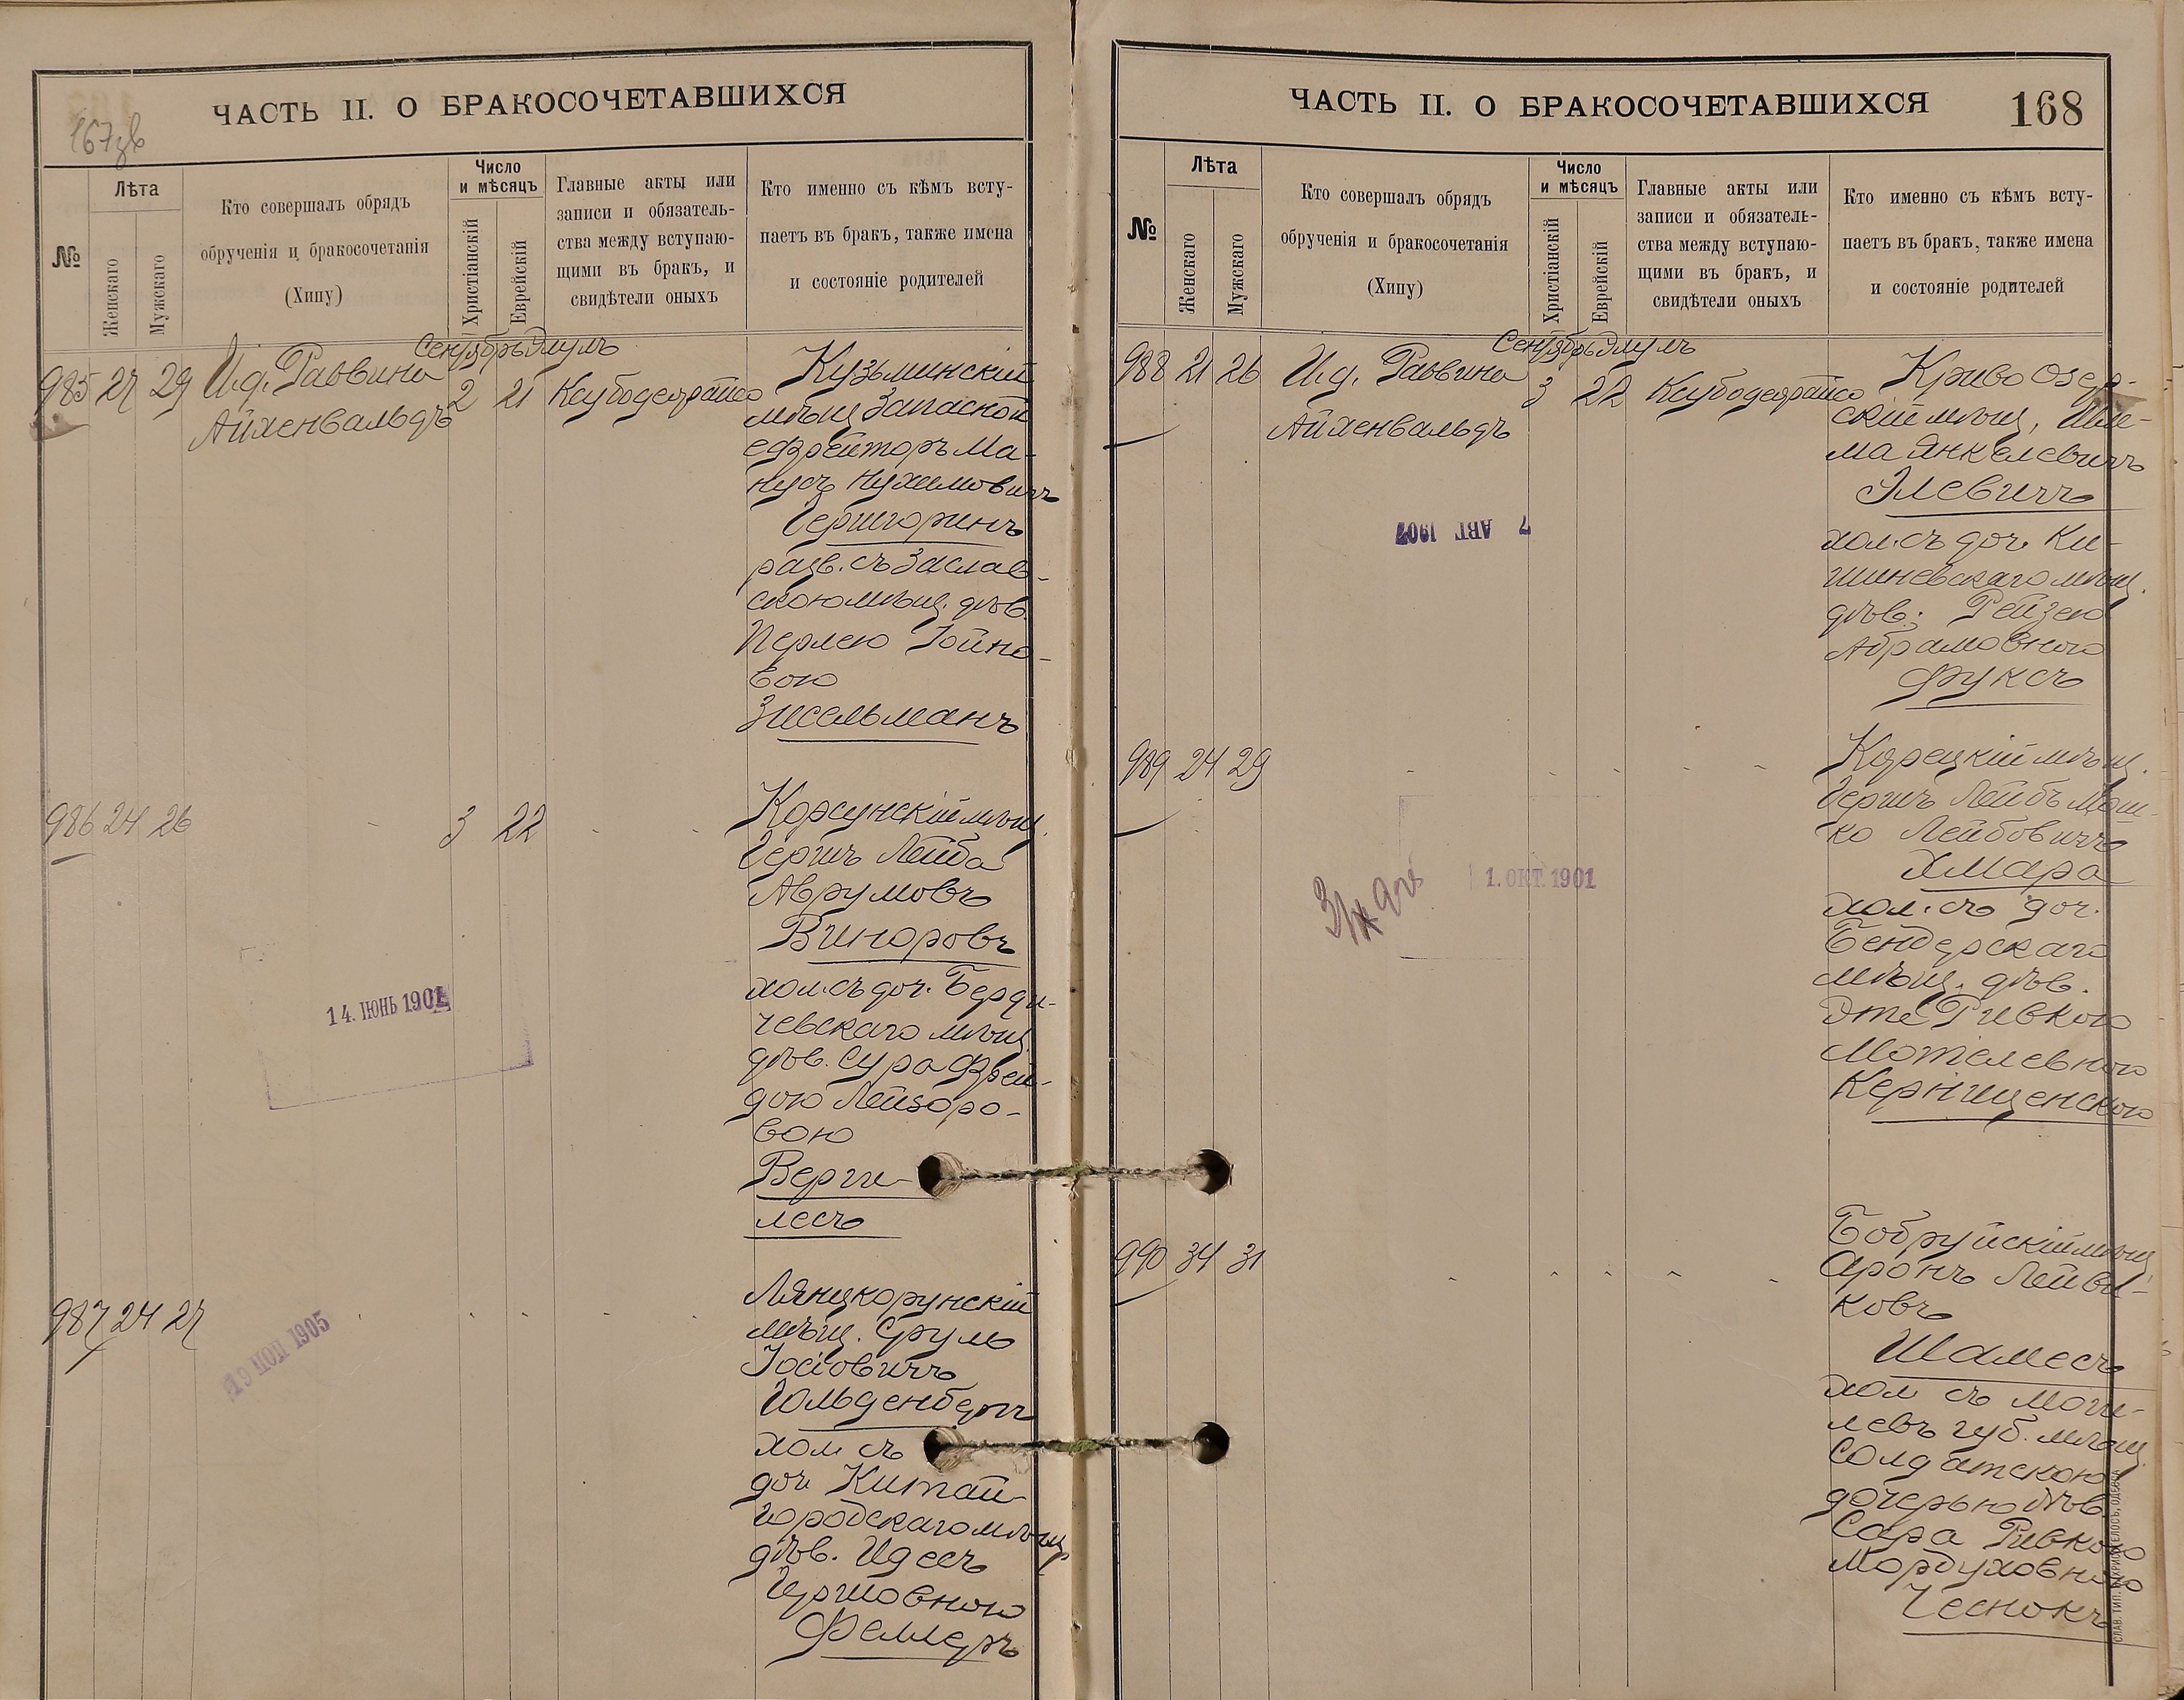 ЧАСТЬ II. О БРАКОСОЧЕТАВШИХСЯ
167
№
Лѣта
Женскаго
Мужскаго
Кто совершалъ обрядъ
обрученія и бракосочетанія
(Хипу)
Число
и мѣсяцъ
Христіанскій
Еврейскій
Главные акты или
записи и обязатель-
ства между вступаю-
щими въ бракъ, и
свидѣтели оныхъ
Кто именно съ кѣмъ всту-
паетъ въ бракъ, также имена
и состояніе родителей
Сентябрь Элулъ
985 27 29 И.д. Раввина 2 21
Айхенвальдъ
Кузьминскій
мѣщ. Запасной
ефрейторъ Ма-
нусъ Нухимовичъ
Чершоринъ
разв. съ Заслав-
скою мѣщ. дѣв.
Перлею Іойно-
вою
Зисельманъ
986 24 26 3 22
Корсунскій мѣщ.
Гершъ Лейба
Аврумовъ
Виноровъ
хол. съ доч. Берди-
чевскаго мѣщ.
дѣв. Сура Фрей-
дою Лейзоро-
вою
Верги-
лесъ
14. ІЮНЬ 1902
987 24 27
Лянцкорунскій
мѣщ. Сруль
Іосіовичъ
Гольденбергъ
хол. съ
доч. Китай-
городскаго мѣщ.
дѣв. Идесъ
Гершовною
Феллеръ
1905
ЧАСТЬ II. О БРАКОСОЧЕТАВШИХСЯ
168
№
Лѣта
Женскаго
Мужскаго
Кто совершалъ обрядъ
обрученія и бракосочетанія
(Хипу)
Число
и мѣсяцъ
Христіанскій
Еврейскій
Главные акты или
записи и обязатель-
ства между вступаю-
щими въ бракъ, и
свидѣтели оныхъ
Кто именно съ кѣмъ всту-
паетъ въ бракъ, также имена
и состояніе родителей
Сентябрь Элулъ
988 21 26 И.д. Раввина 3 22
Айхенвальдъ
Кривоозер-
скій мѣщ. Шле-
ма Янкелевичъ
Элевичъ
хол. съ доч. Ки-
шиневскаго мѣщ.
дѣв. Рейзею
Абрамовною
Фуксъ
7 АВГ 1907
989 24 29
Корецкій мѣщ.
Гершъ Лейбъ Мош-
ко Лейбовичъ
Хмара
хол. съ доч.
Бендерскаго
мѣщ. дѣв.
Эте Ривкою
Мотелевною
Кернищенскою
1. ОКТ. 1901
990 34 31
Бобруйскій мѣщ.
Аронъ Лейви-
ковъ
Шамесъ
хол съ Моги-
левъ губ. мѣщ.
Солдатскою
дочерью дѣв.
Сара Ривкою
Мордуховною
Чеснокъ